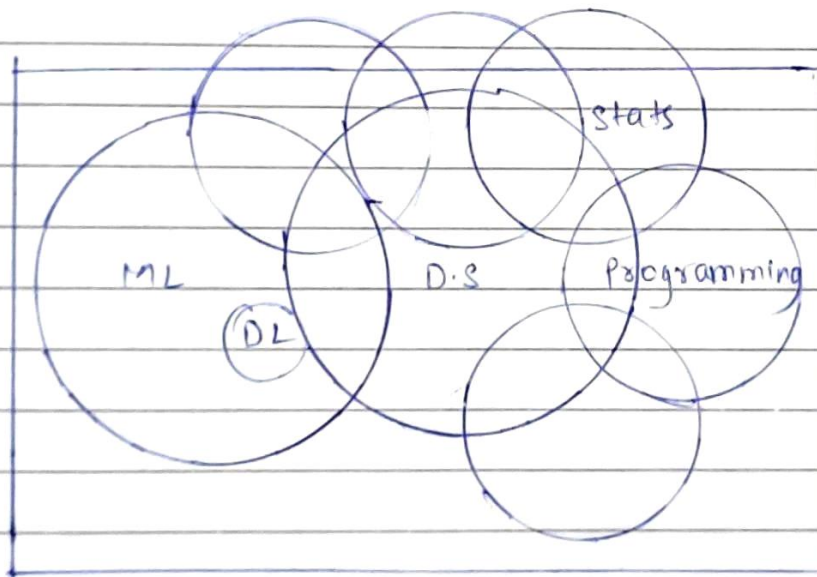 stats
ML
D.S
Programming
DL